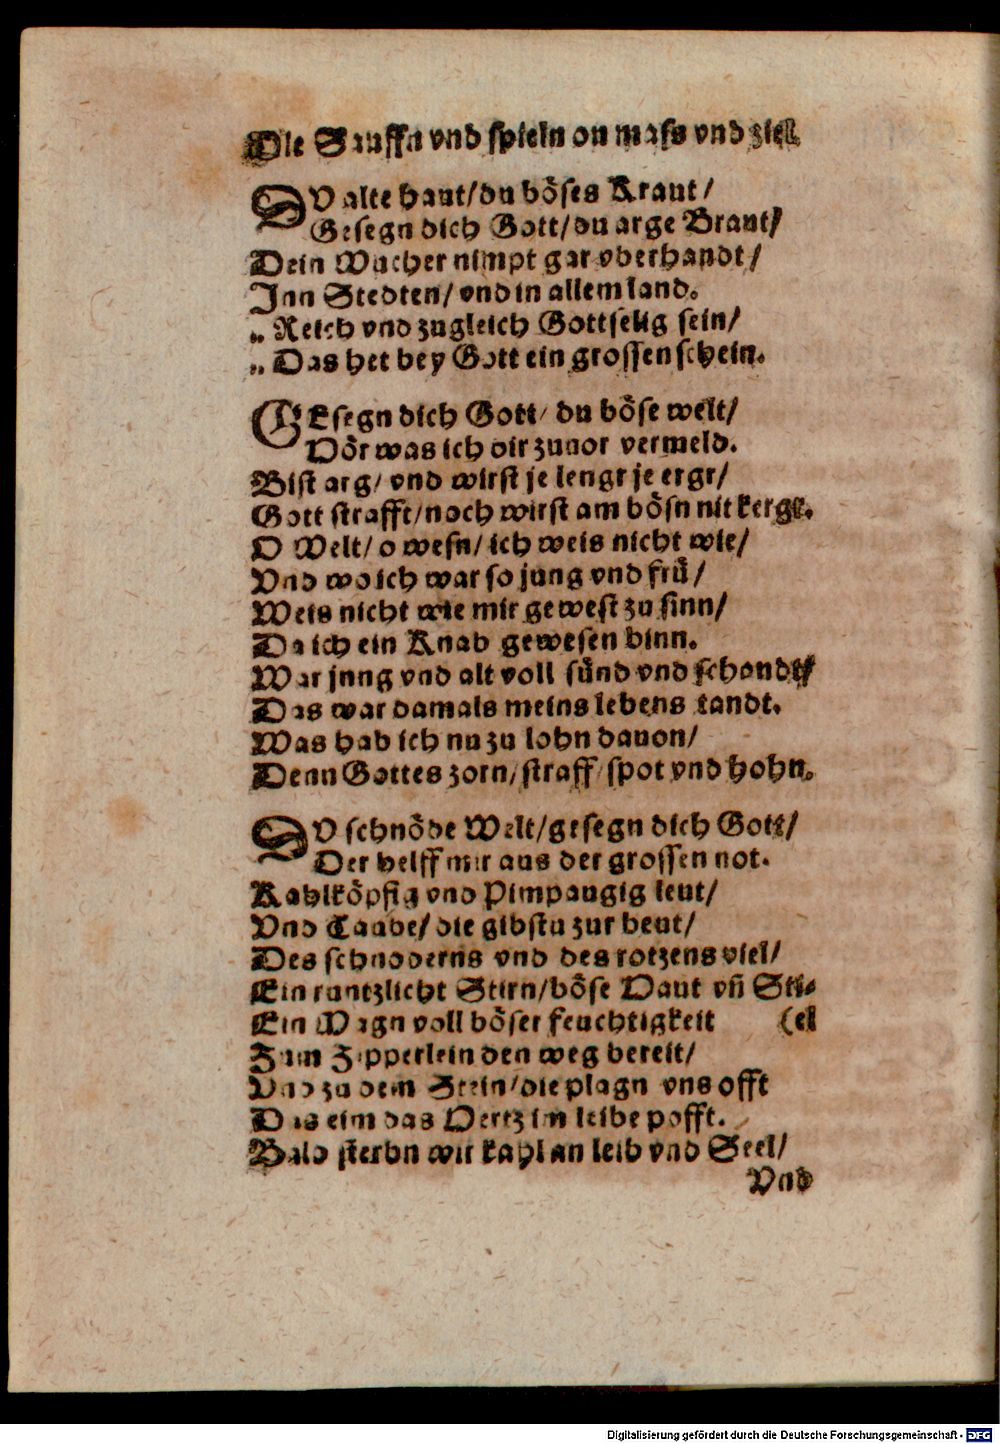 Die Sauffn vnd spieln on mass vnd ziel.
DV alte haut/du böses Kraut/
Gesegn dich Gott/du arge Braut/
Dein Wucher nimpt gar vberhandt/
Inn Stedten/ vnd in allem land.
„ Reich vnd zugleich Gottselig sein/
„ Das het bey Gott ein grossen schein.
GEsegn dich Gott/ du böse welt/
Hör was ich dir zuuor vermeld.
Bist arg/ vnd wirst je lengr je ergr/
Gott strafft/noch wirst am bösn nit kergr.
O Welt/ o wesn/ ich weis nicht wie/
Vnd wo ich war so jung vnd frü/
Weis nicht wie mir gewest zu sinn/
Da ich ein Knab gewesen binn.
War jung vnd alt voll sünd vnd schandt/
Das war damals meins lebens tandt.
Was hab ich nu zu lohn dauon/
Denn Gottes zorn/ straff/ spot vnd hohn.
DV schnöde Welt/gesegn dich Gott/
Der helff mir aus der grossen not.
Kahlköpfig vnd Pimpaugig leut/
Vnd Taube/ die gibstu zur beut/
Des schnoderns vnd des rotzens viel/
Ein runtzlicht Stirn/böse Haut vñ Sti-
Ein Magn voll böser feuchtigkeit (el
Zum Zipperlein den weg bereit/
Vnd zu dem Stein/die plagn vns offt
Das eim das Hertz im leibe pofft.
Bald sterbn wir kahl an leib vnd Seel/
Vnd
Digitalisierung gefördert durch die Deutsche Forschungsgemeinschaft - DFG